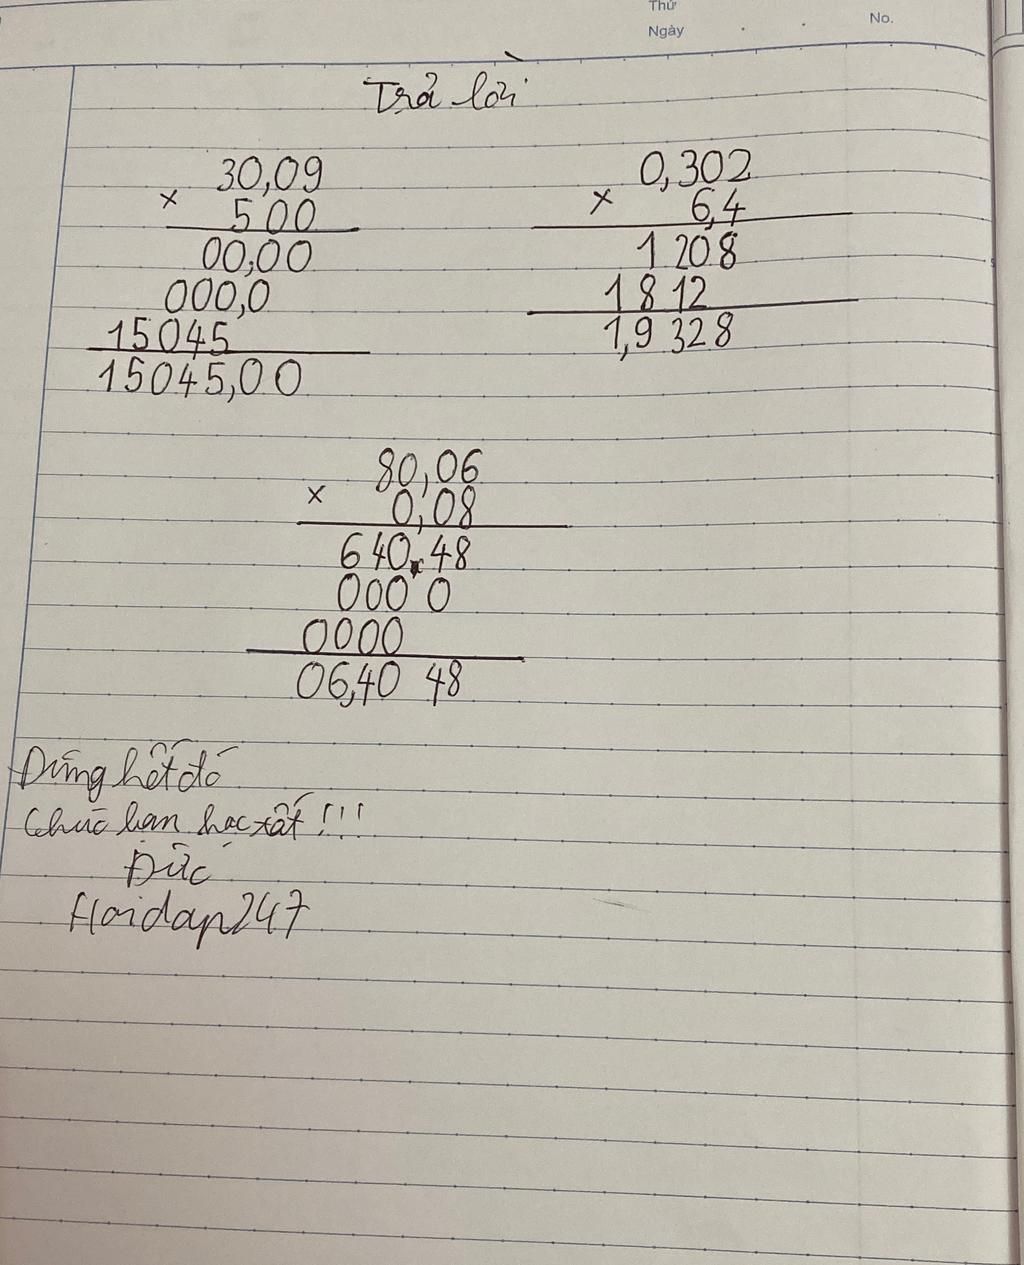 Thứ
Ngày
No.
Trả lời
30,09
× 500
00,00
000,0
15045
15045,00
0,302
× 6,4
1 208
1 8 12
1,9 328
80,06
× 0,08
640,48
000 0
0000
06,40 48
Đúng hết đó
Chúc bạn học tốt !!!
Đức
Hoidap247